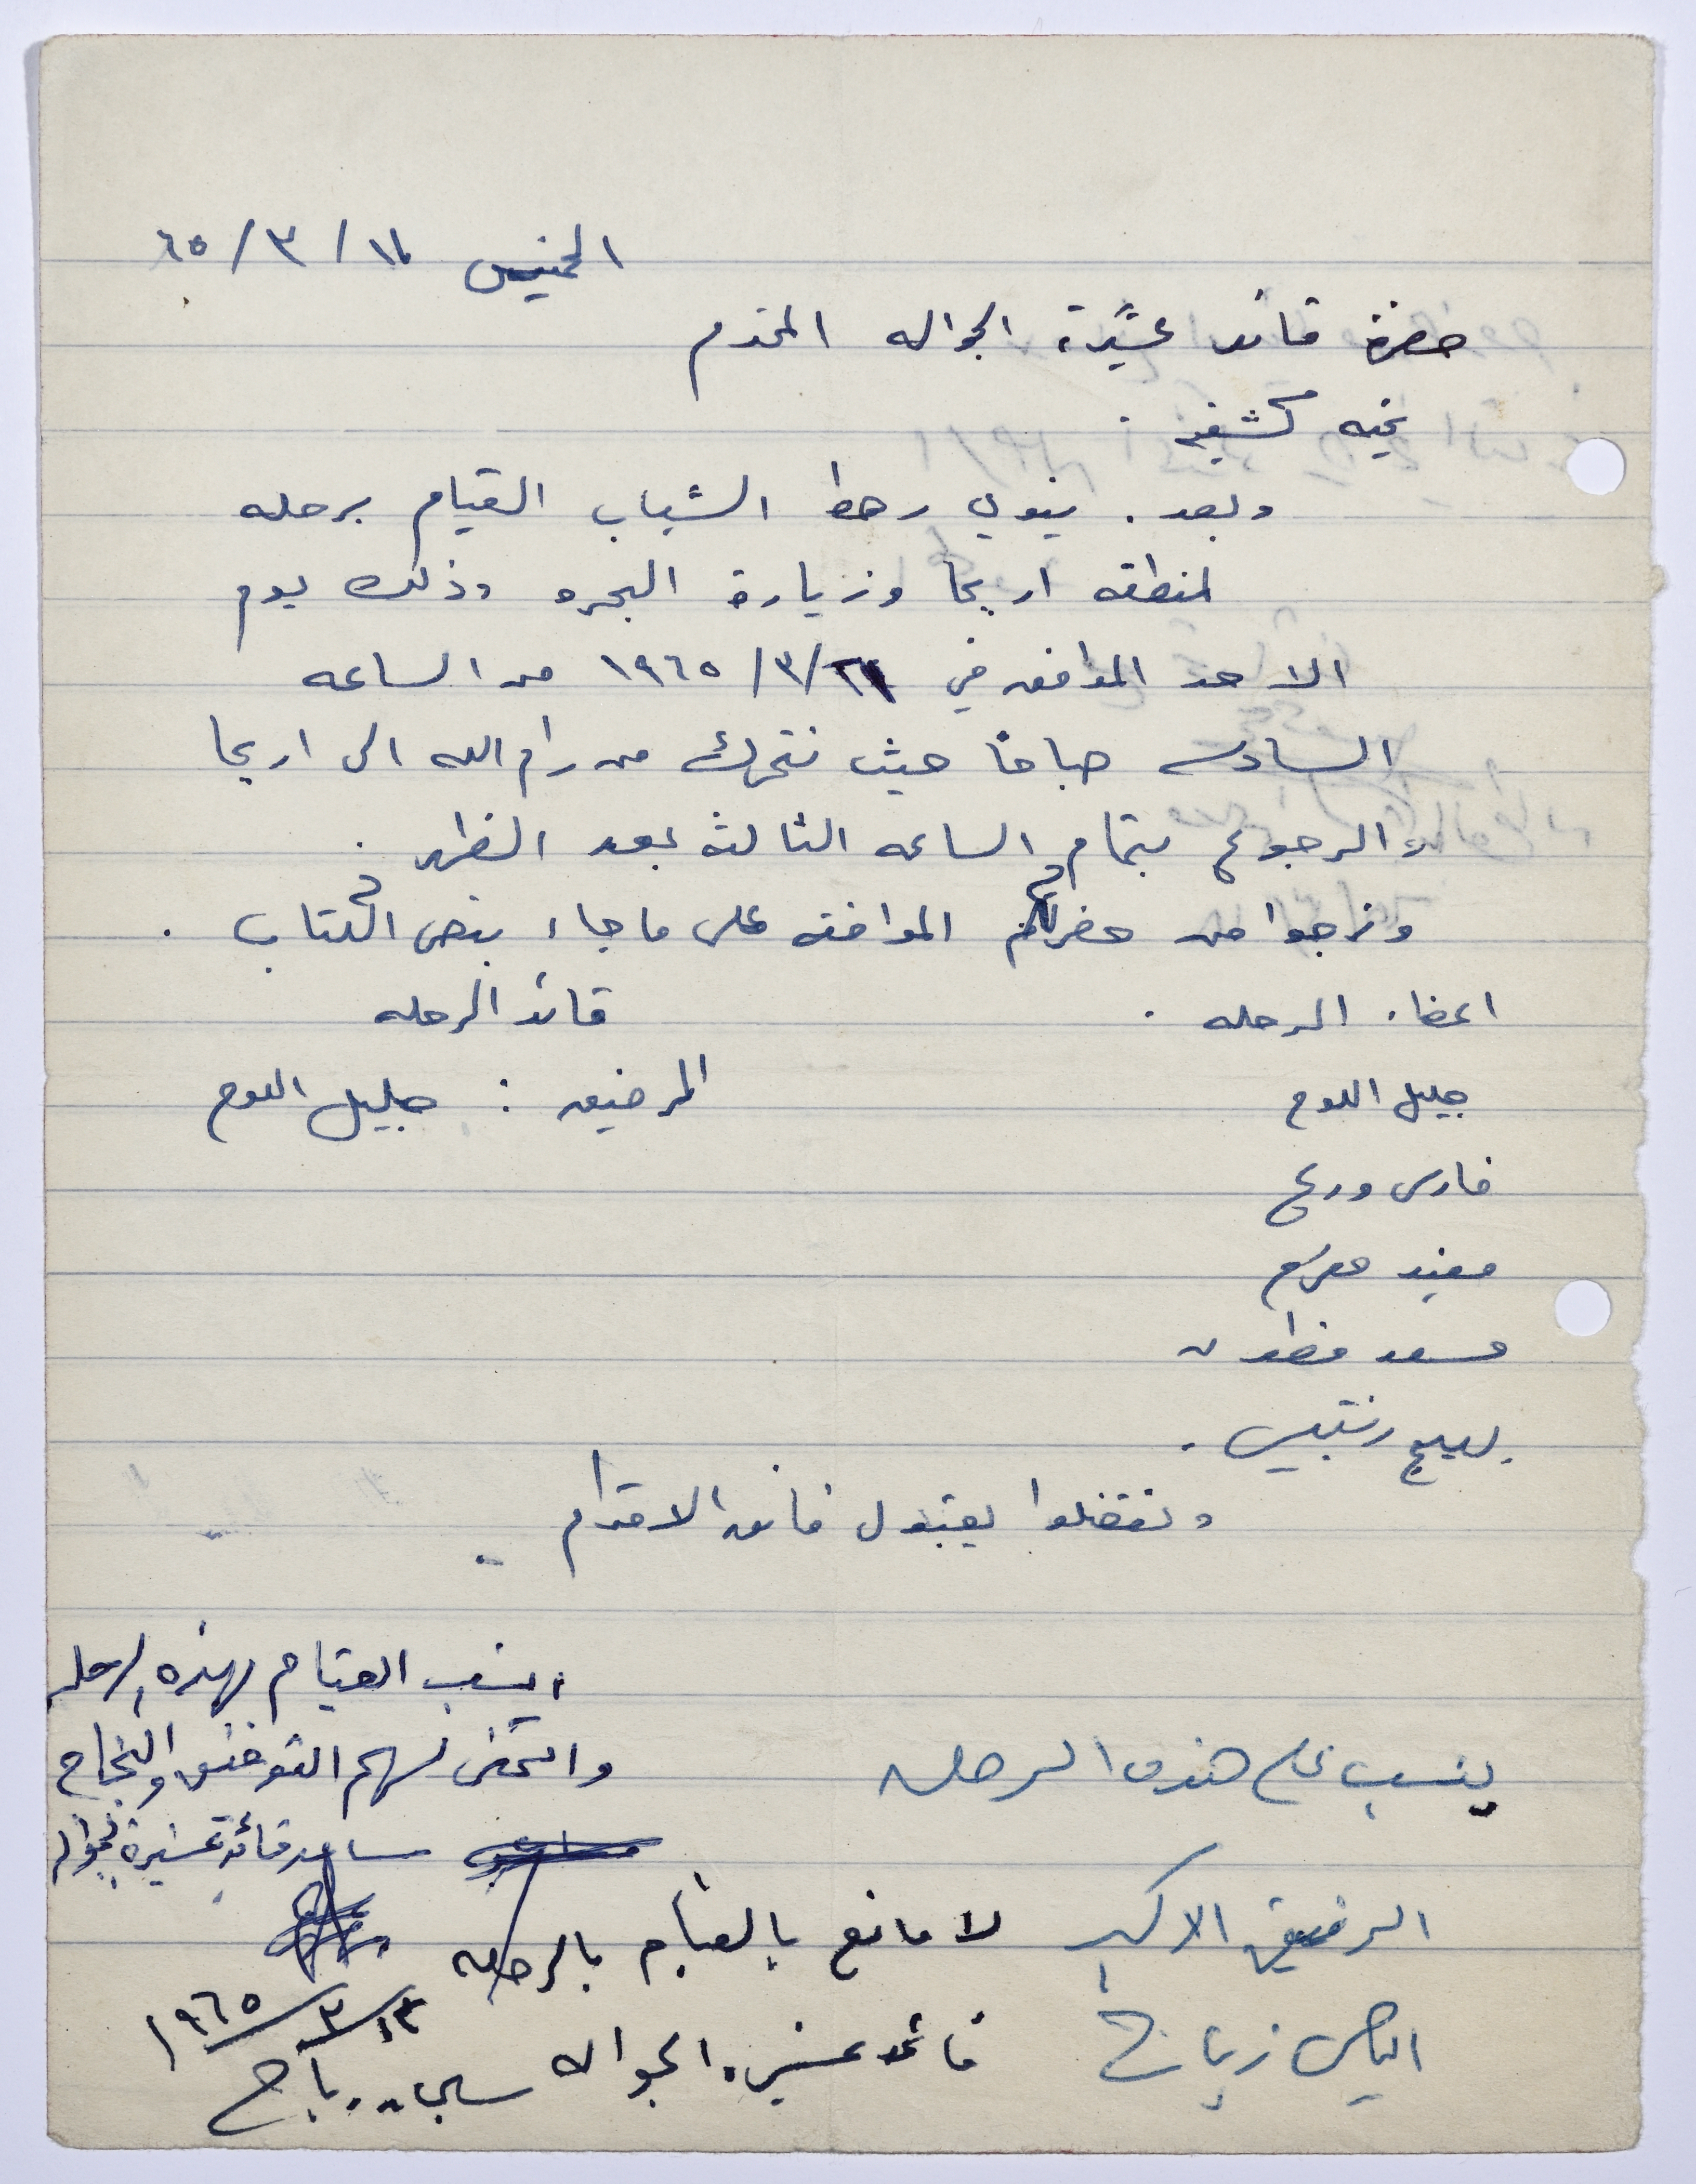 الخميس ١٨/٣/٦٥
حضرة قائد عشيرة الجواله المحترم
تحيه كشفيه .
وبعد . ينوي رهط الشباب القيام برحله
لمنطقه اريحا وزيارة البحره وذلك يوم
الاحد الموافق في ٢١/٣/١٩٦٥ من الساعه
السادسه صباحاً حيث نتحرك من رام الله الى اريحا
والرجوع بتمام الساعه الثالثه بعد الظهر .
ونرجوا من حضرتكم الموافقه على ما جاء بنص الكتاب .
اعضاء الرحله . قائد الرحله
جليل اللوح الرفيق : جليل اللوح
فارس
مفيد
مسعد
بديع رنتيسي .
وتفضلوا بقبول فائق الاحترام
انسب القيام بهذه الرحله
واتمنى لهم التوفيق والنجاح
مساعد قائد عشيرة الجواله
ينسب على هذه الرحله
الرفيق الاكبر
الياس رباح
لا مانع بالقيام بالرحله
قائد عشيره الجواله رباح
١٣/٣/١٩٦٥